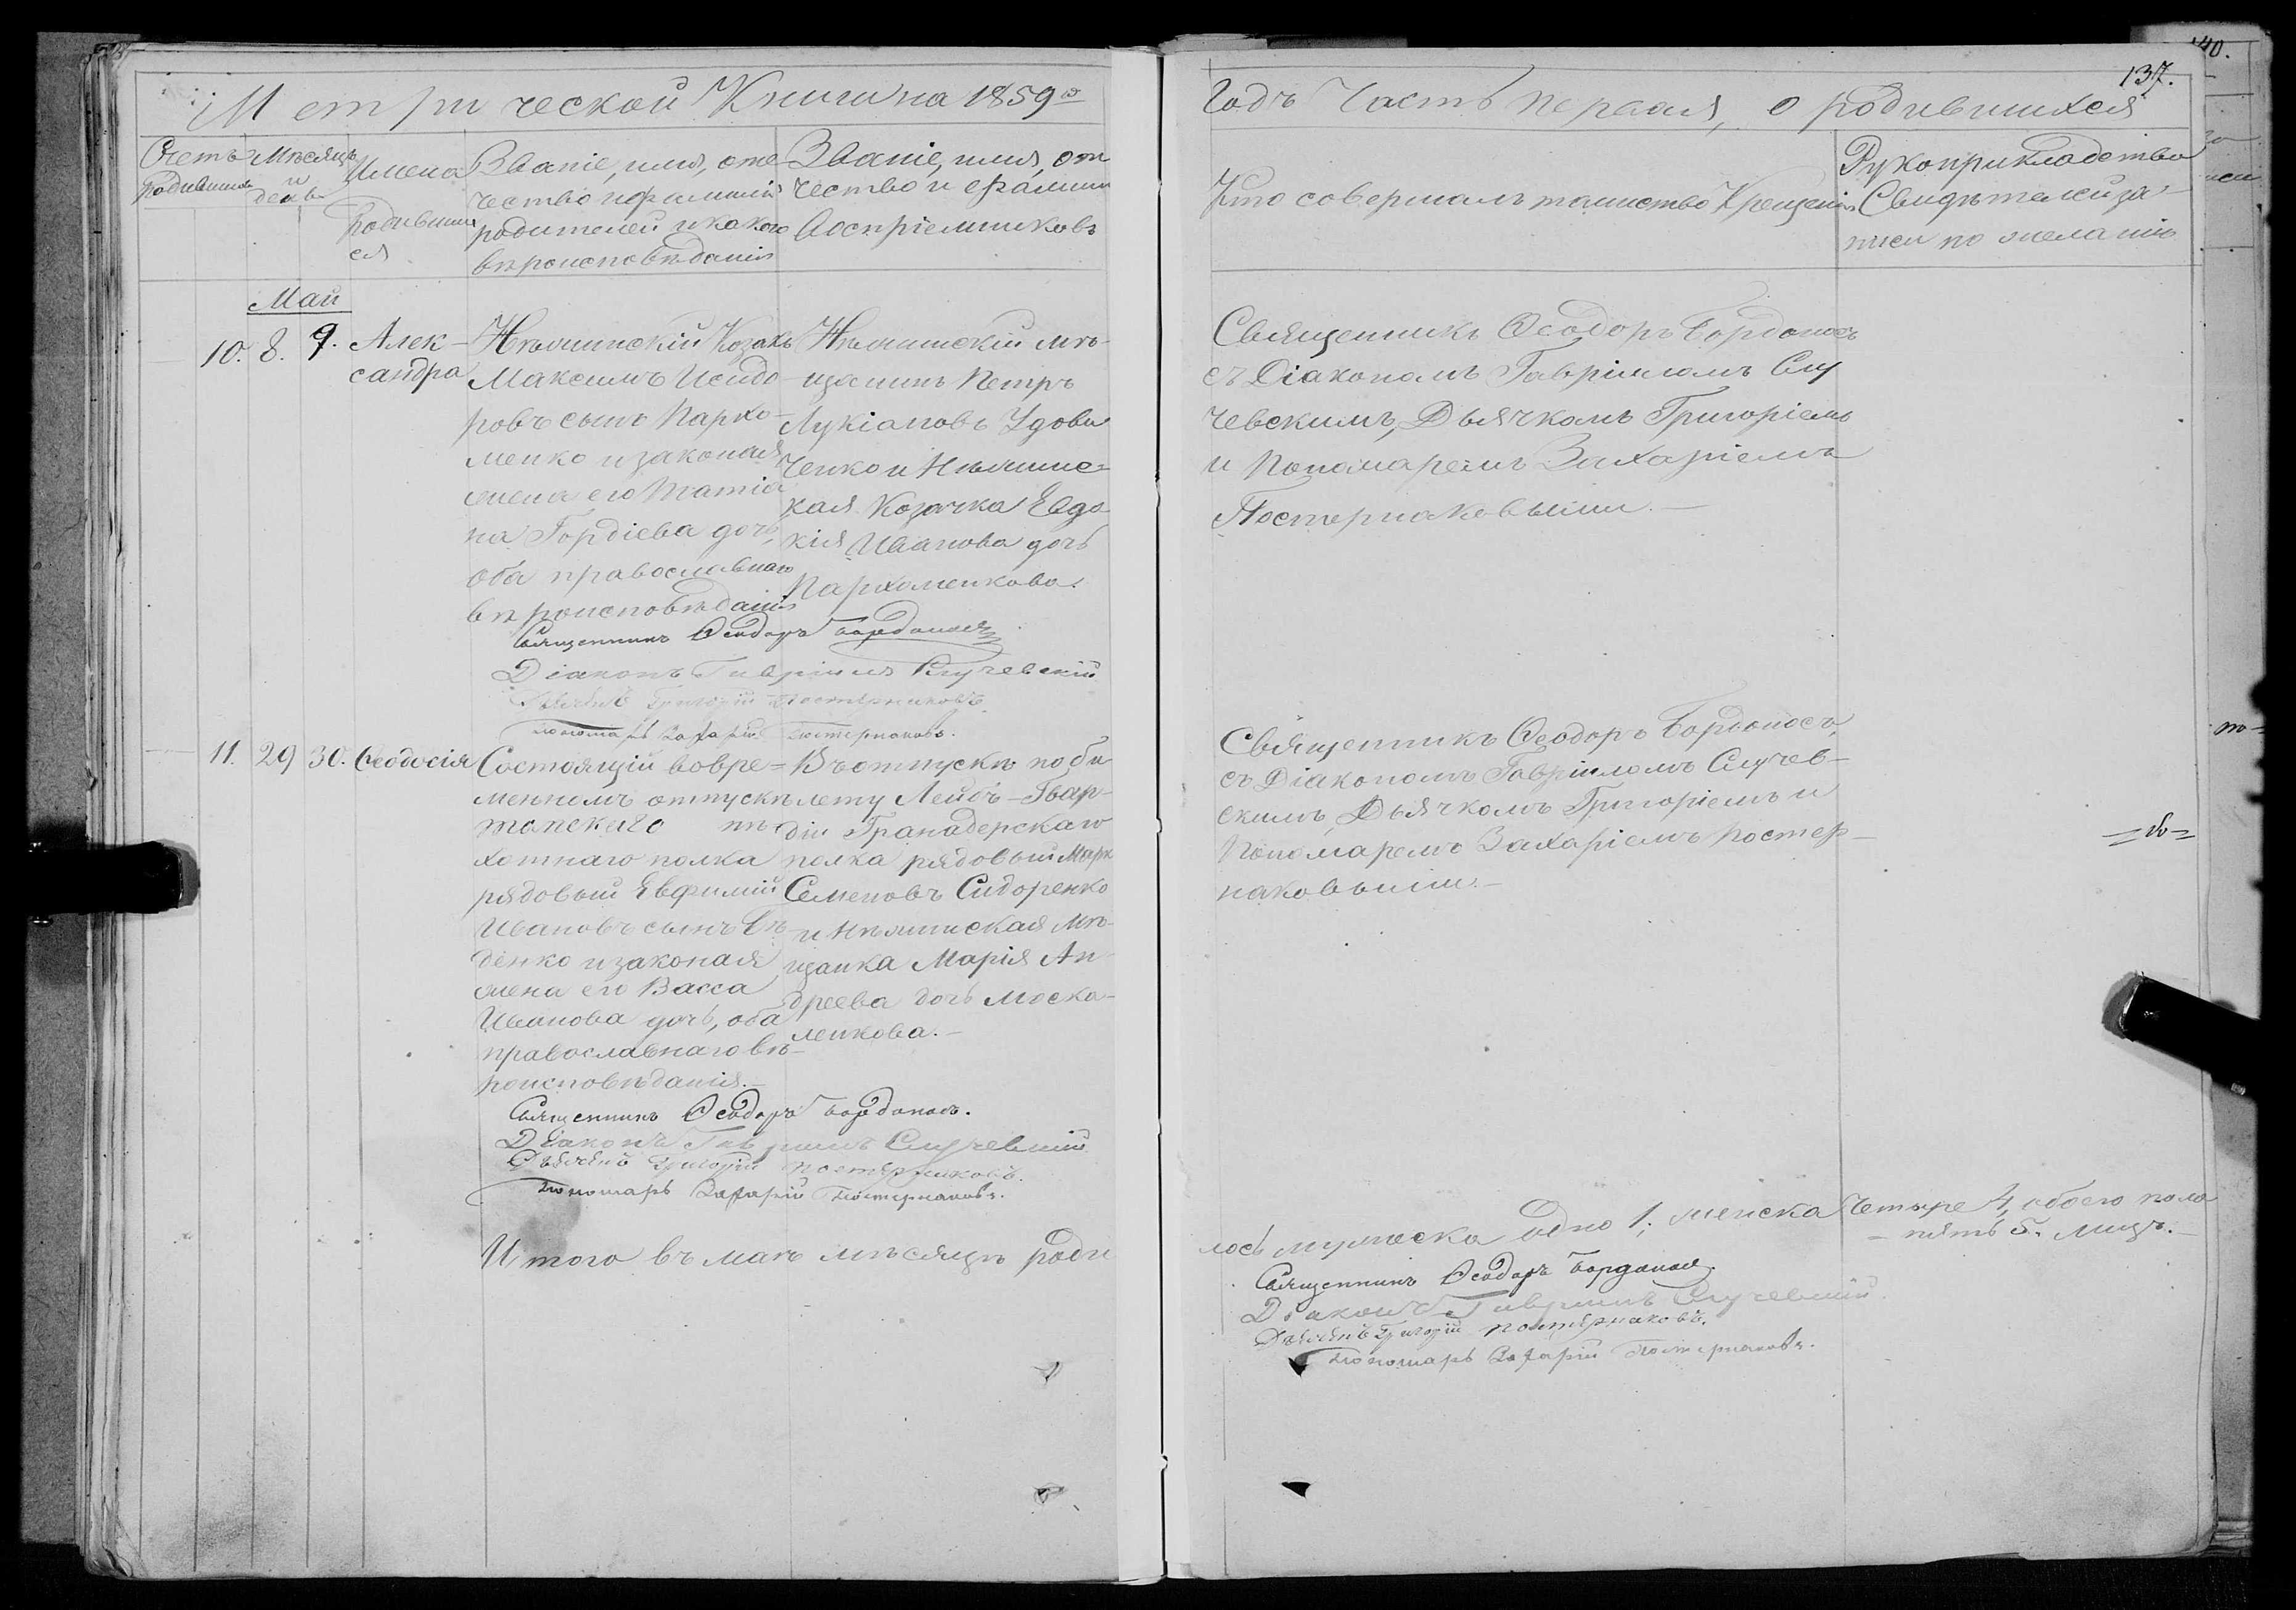 40.
137.
Метрической Книги на 1859й
Годъ Часть первая, о родившихся
Счетъ родившихся
Мѣсяцъ и день
Имена родившихся
Званіе, имя, отечество и фамилія родителей и какого вѣроисповѣданія
Званіе, имя, отчество и фамилія Воспріемниковъ
Кто совершалъ таинство Крещенія
Рукоприкладство Свидѣтелей записи по желанію
Май
10. 8. 9. Александра
Нѣжинскій Козакъ
Максимъ Исидо-
ровъ сынъ Пархо-
менко и законая
жена его Татіа
на Гордіева дочь,
оба православнаго
вѣроисповѣданія
Нѣжинскій мѣ-
щанинъ Петръ
Лукіановъ Удови
ченко и Нѣжинс-
кая Козачка Евдо-
кія Иванова дочь
Пархоменкова.
Священникъ Ѳеодоръ Бордоносъ
съ Діакономъ Гавріиломъ Слу
чевскимъ, Дьячкомъ Григоріемъ
и Пономаремъ Захаріемъ
Постернаковыми.—
Священникъ Ѳеодоръ Бордоносъ
Діаконъ Гавріилъ Случевскій
Дьячекъ Григорій Постернаковъ.
Пономарь Захарій Постернаковъ.
11. 29 30. Ѳеодосія
Состоящій вовре=
менномъ отпускѣ
пѣ
хотнаго полка
рядовый Евфимій
Ивановъ сынъ
денко и законая
жена его Васса
Иванова дочь, оба
православнаго вѣ-
роисповѣданія.—
Въ отпускѣ по би
лету Лейбъ-Гвар-
діи Гранадерскаго
полка рядовый Марк
Семеновъ Сидоренко
и Нѣжинская Мѣ-
щанка Марія Ан
дреева дочь Моска-
ленкова.—
Священникъ Ѳеодоръ Бордоносъ,
съ Діакономъ Гавріиломъ Случев-
скимъ, Дьячкомъ Григоріемъ и
Пономаремъ Захаріемъ Постер-
наковыми.—
Священникъ Ѳеодоръ Бордоносъ.
Діаконъ Гавріилъ Случевскій
Дьячекъ Григорій Постернаковъ.
Пономарь Захарій Постернаковъ.
Итого въ маѣ мѣсяцѣ роди
лось мужеска одно 1; женска четыре 4, обоего пола
— пять 5. лицъ.—
Священникъ Ѳеодоръ Бордоносъ.
Діаконъ Гавріилъ Случевскій.
Дьячекъ Григорій Постернаковъ.
Пономарь Захарій Постернаковъ.